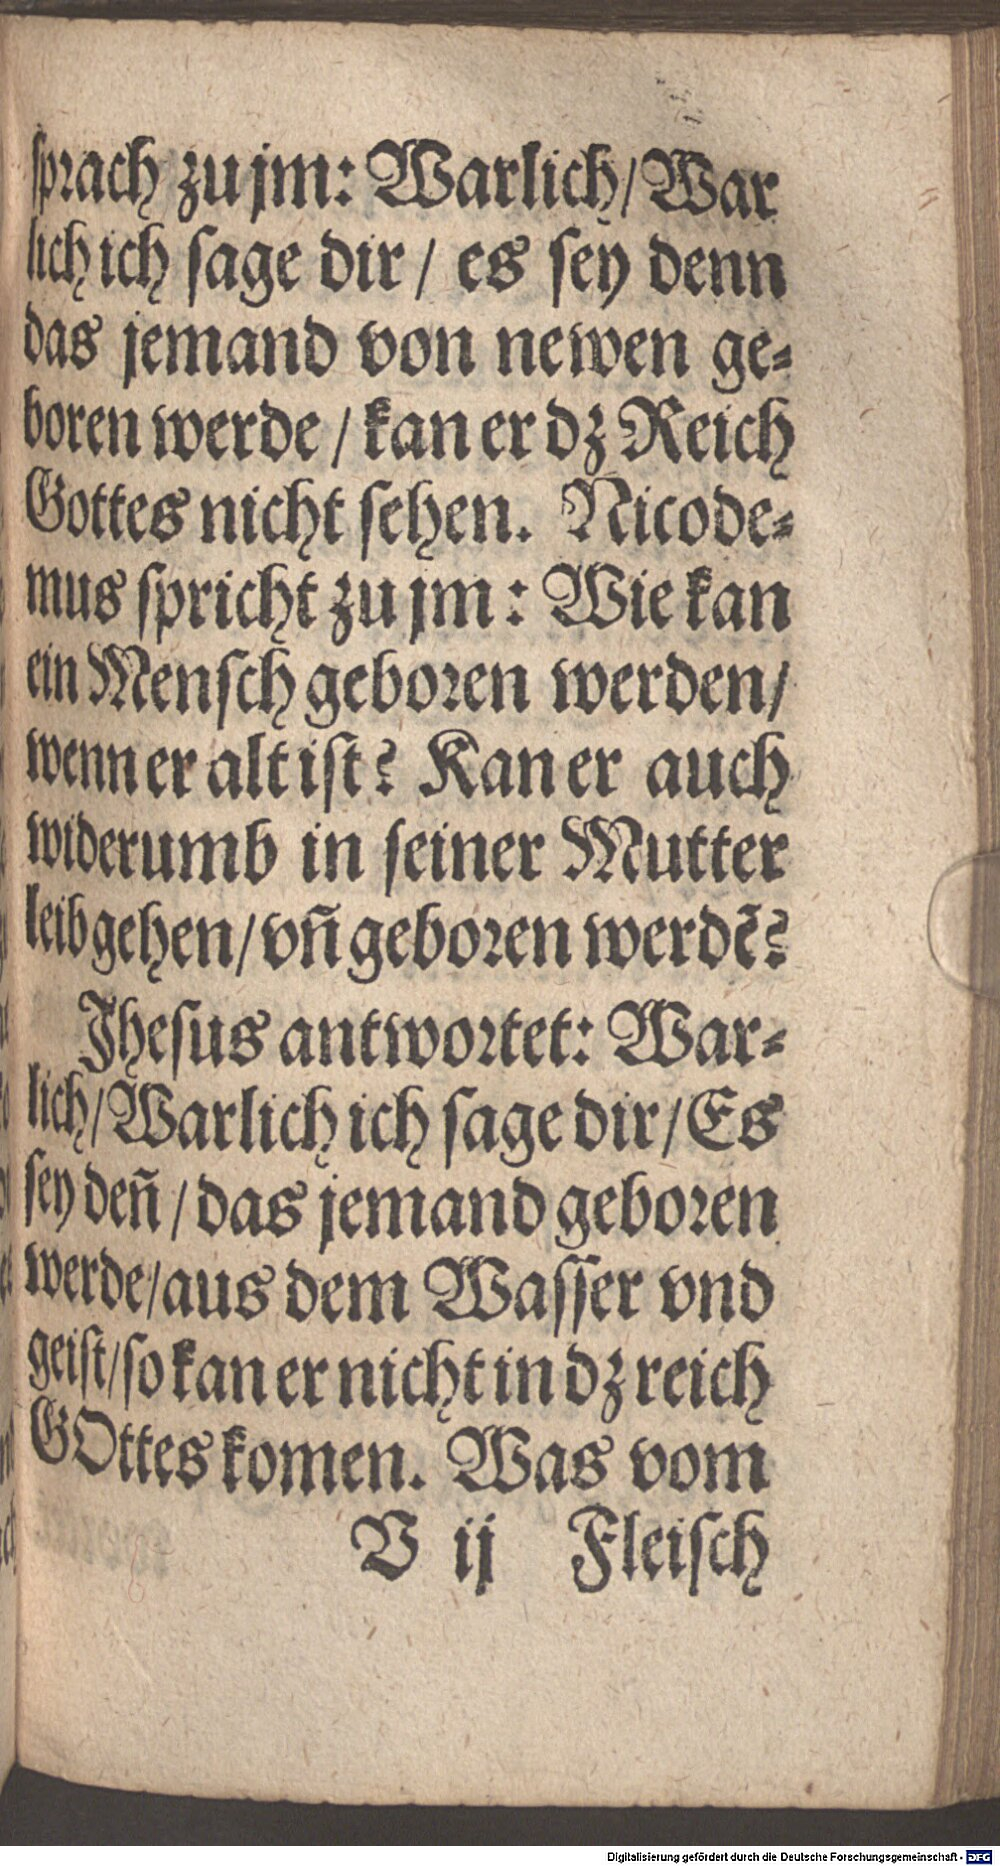 sprach zu jm: Warlich/ War
lich ich sage dir/ es sey denn
das jemand von newen ge-
boren werde/ kan er dz Reich
Gottes nicht sehen. Nicode-
mus spricht zu jm: Wie kan
ein Mensch geboren werden/
wenn er alt ist? Kan er auch
widerumb in seiner Mutter
leib gehen/ vñ geboren werdẽ?
Jhesus antwortet: War-
lich/ Warlich ich sage dir/ Es
sey deñ/ das jemand geboren
werde/ aus dem Wasser vnd
geist/ so kan er nicht in dz reich
GOttes komen. Was vom
V ij Fleisch
Digitalisierung gefördert durch die Deutsche Forschungsgemeinschaft - DFG